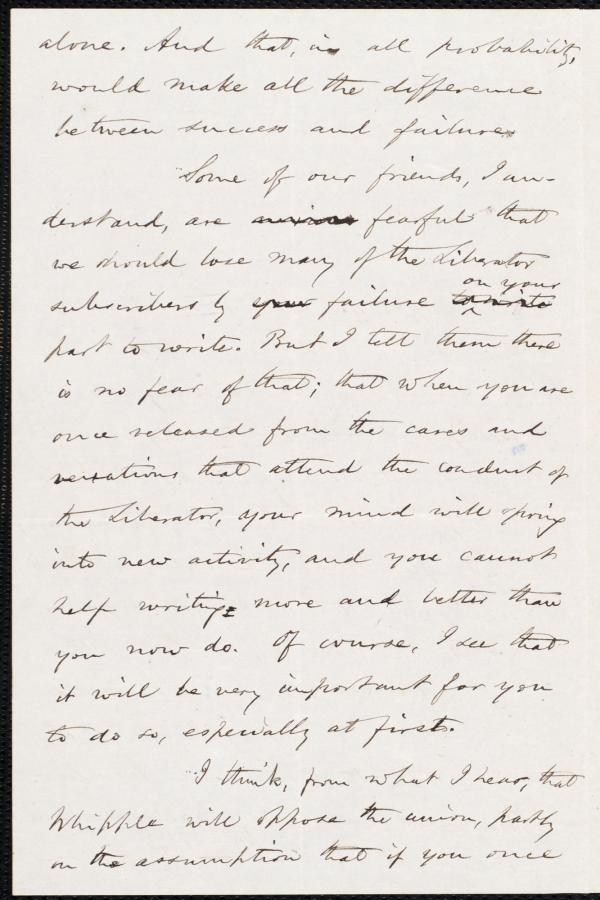 alone. And that, in all probability,
would make all the difference
between success and failure.
Some of our friends, I un-
derstand, are fearful that
we should lose many of the Liberator
on your
subscribers by your failure to write
part to write. But I tell them there
is no fear of that; that when you are
once released from the cares and
vexations that attend the conduct of
the Liberator, your mind will spring
into new activity, and you cannot
help writing more and better than
you now do. Of course, I see that
it will be very important for you
to do so, especially at first.
I think, from what I hear, that
Whipple will oppose the union, partly
on the assumption that if you once